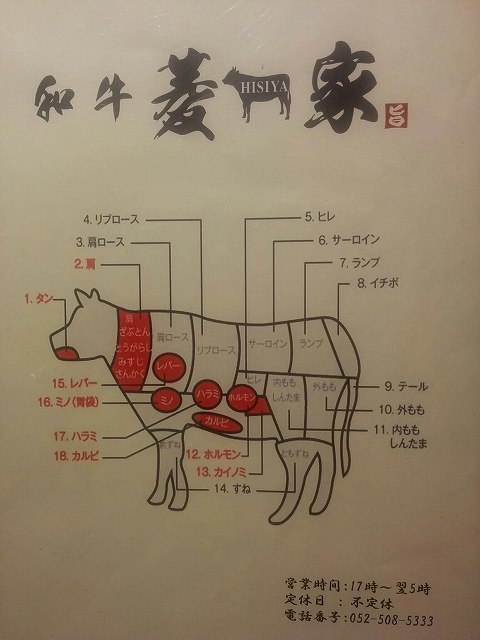 和牛 菱 HISIYA 家 旨
4. リブロース
5. ヒレ
3. 肩ロース
6. サーロイン
2. 肩
7. ランプ
8. イチボ
1. タン
肩
ざぶとん
とうがらし
みすじ
さんかく
肩ロース
リブロース
サーロイン
ランプ
レバー
ヒレ
内もも
しんたま
外もも
15. レバー
9. テール
16. ミノ(胃袋)
ミノ
ハラミ
ホルモン
10. 外もも
カルビ
17. ハラミ
11. 内もも
しんたま
18. カルビ
前すね
12. ホルモン
ともすね
13. カイノミ
14. すね
営業時間:17時～翌5時
定休日 : 不定休
電話番号:052-508-5333